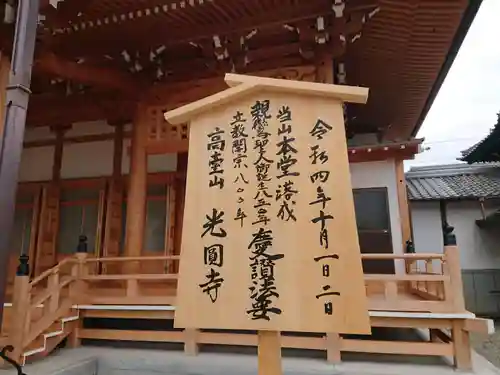 令和四年十月一日二日
当山本堂落成
親鸞聖人御誕生八五〇年
立教開宗八〇〇年
慶讃法要
高臺山 光圓寺